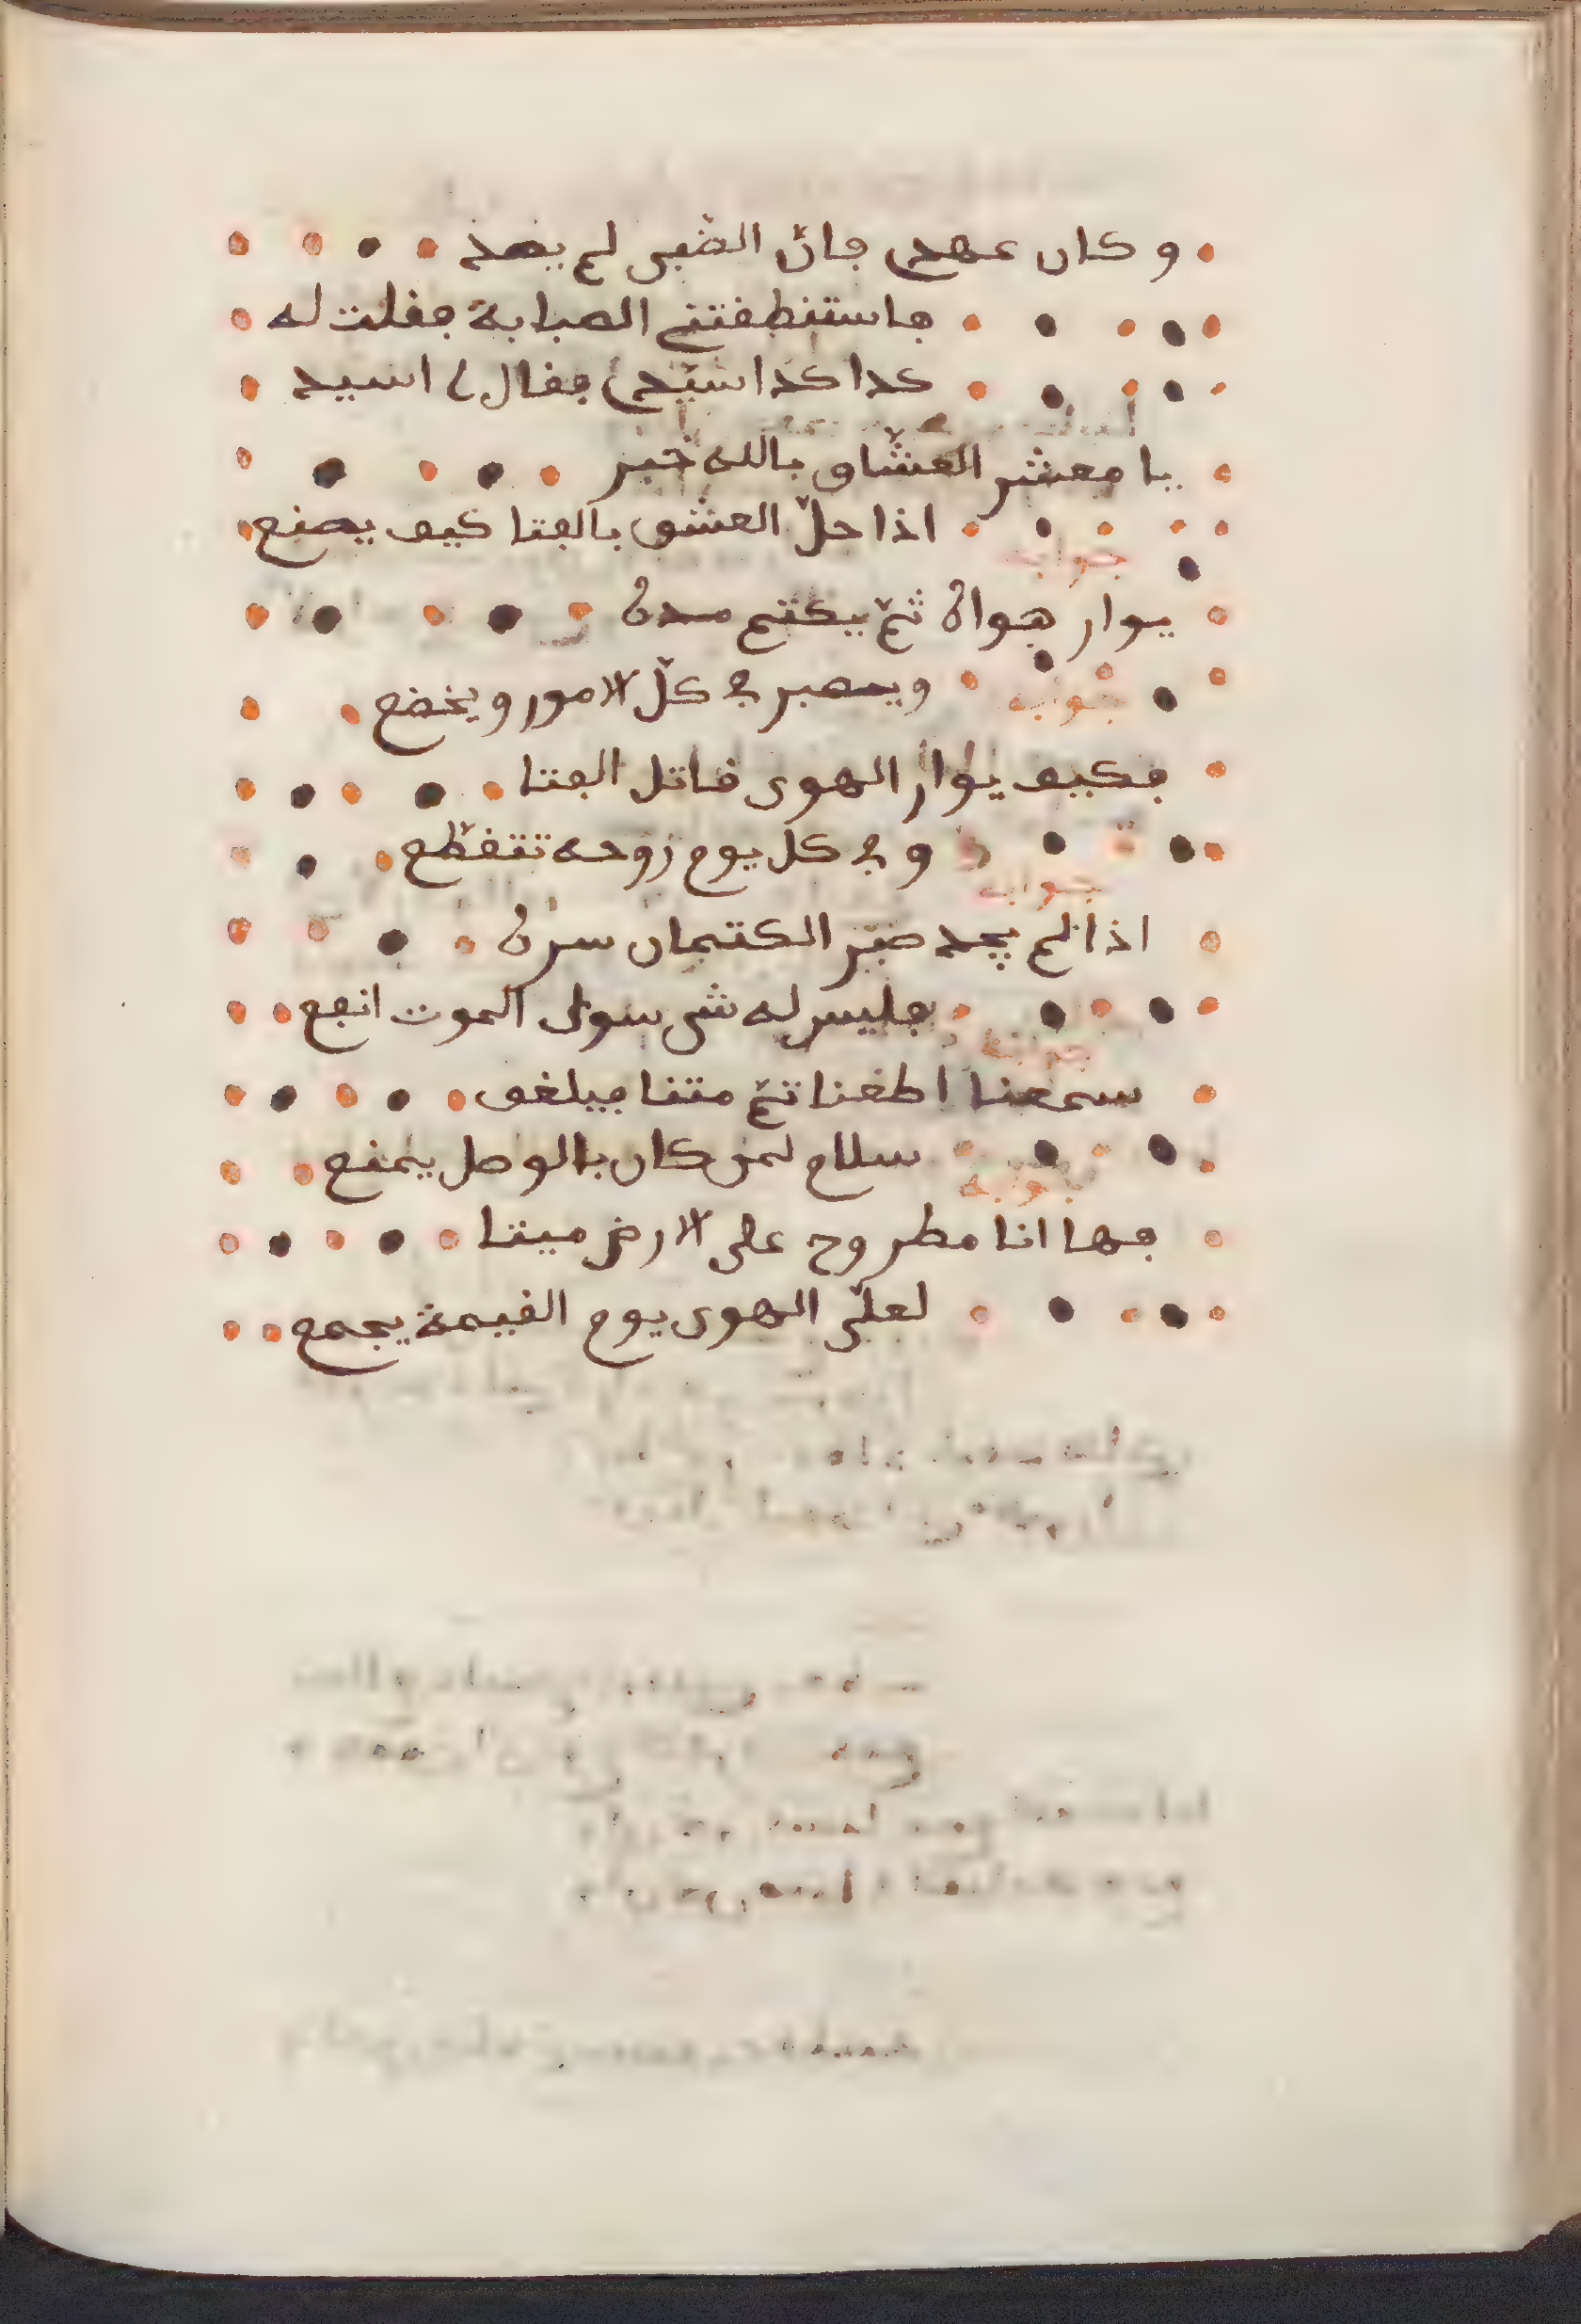 وكان عهدي فان الضبى لم يصد
فاستنطفتني الصبابة فقلت له
كدا كدا سيّدي فقال لا اسيد
يا معشر العشّاق بالله خبر
اذا حلّ العشق بالفتا كيف يصنع
جوابه
يوار هواه ثمّ يكتم سره
ويصبر في كلّ الامور ويخضع
جوابه
فكيف يوار الهوى قاتل الفتا
وفي كل يوم روحه تتقطّع
جوابه
اذا لم يجد صبر الكتمان سره
فليس له شي سوى الموت انفع
جوابه
سمعنا اطعنا ثمّ متنا فبلغو
سلام لمن كان بالوصل يمنع
جوابه
فها انا مطروح على الارض ميتا
لعلّ الهوى يوم القيمة يجمع